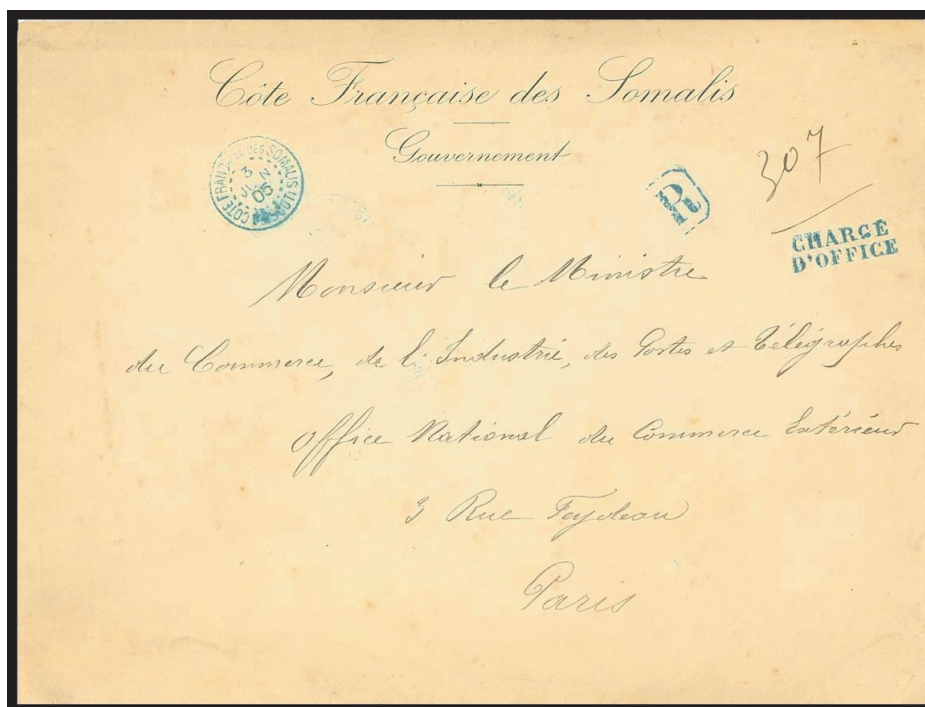 Côte Française des Somalis
Gouvernement
3
05
R
307
CHARGÉ
D'OFFICE
Monsieur le Ministre
du Commerce, de l'Industrie, des Postes et Télégraphes
Office National du Commerce Extérieur
3 Rue Feydeau
Paris